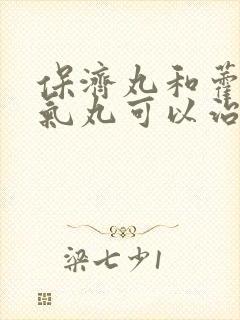 保濟丸和藿
氣丸可以治
梁七少1